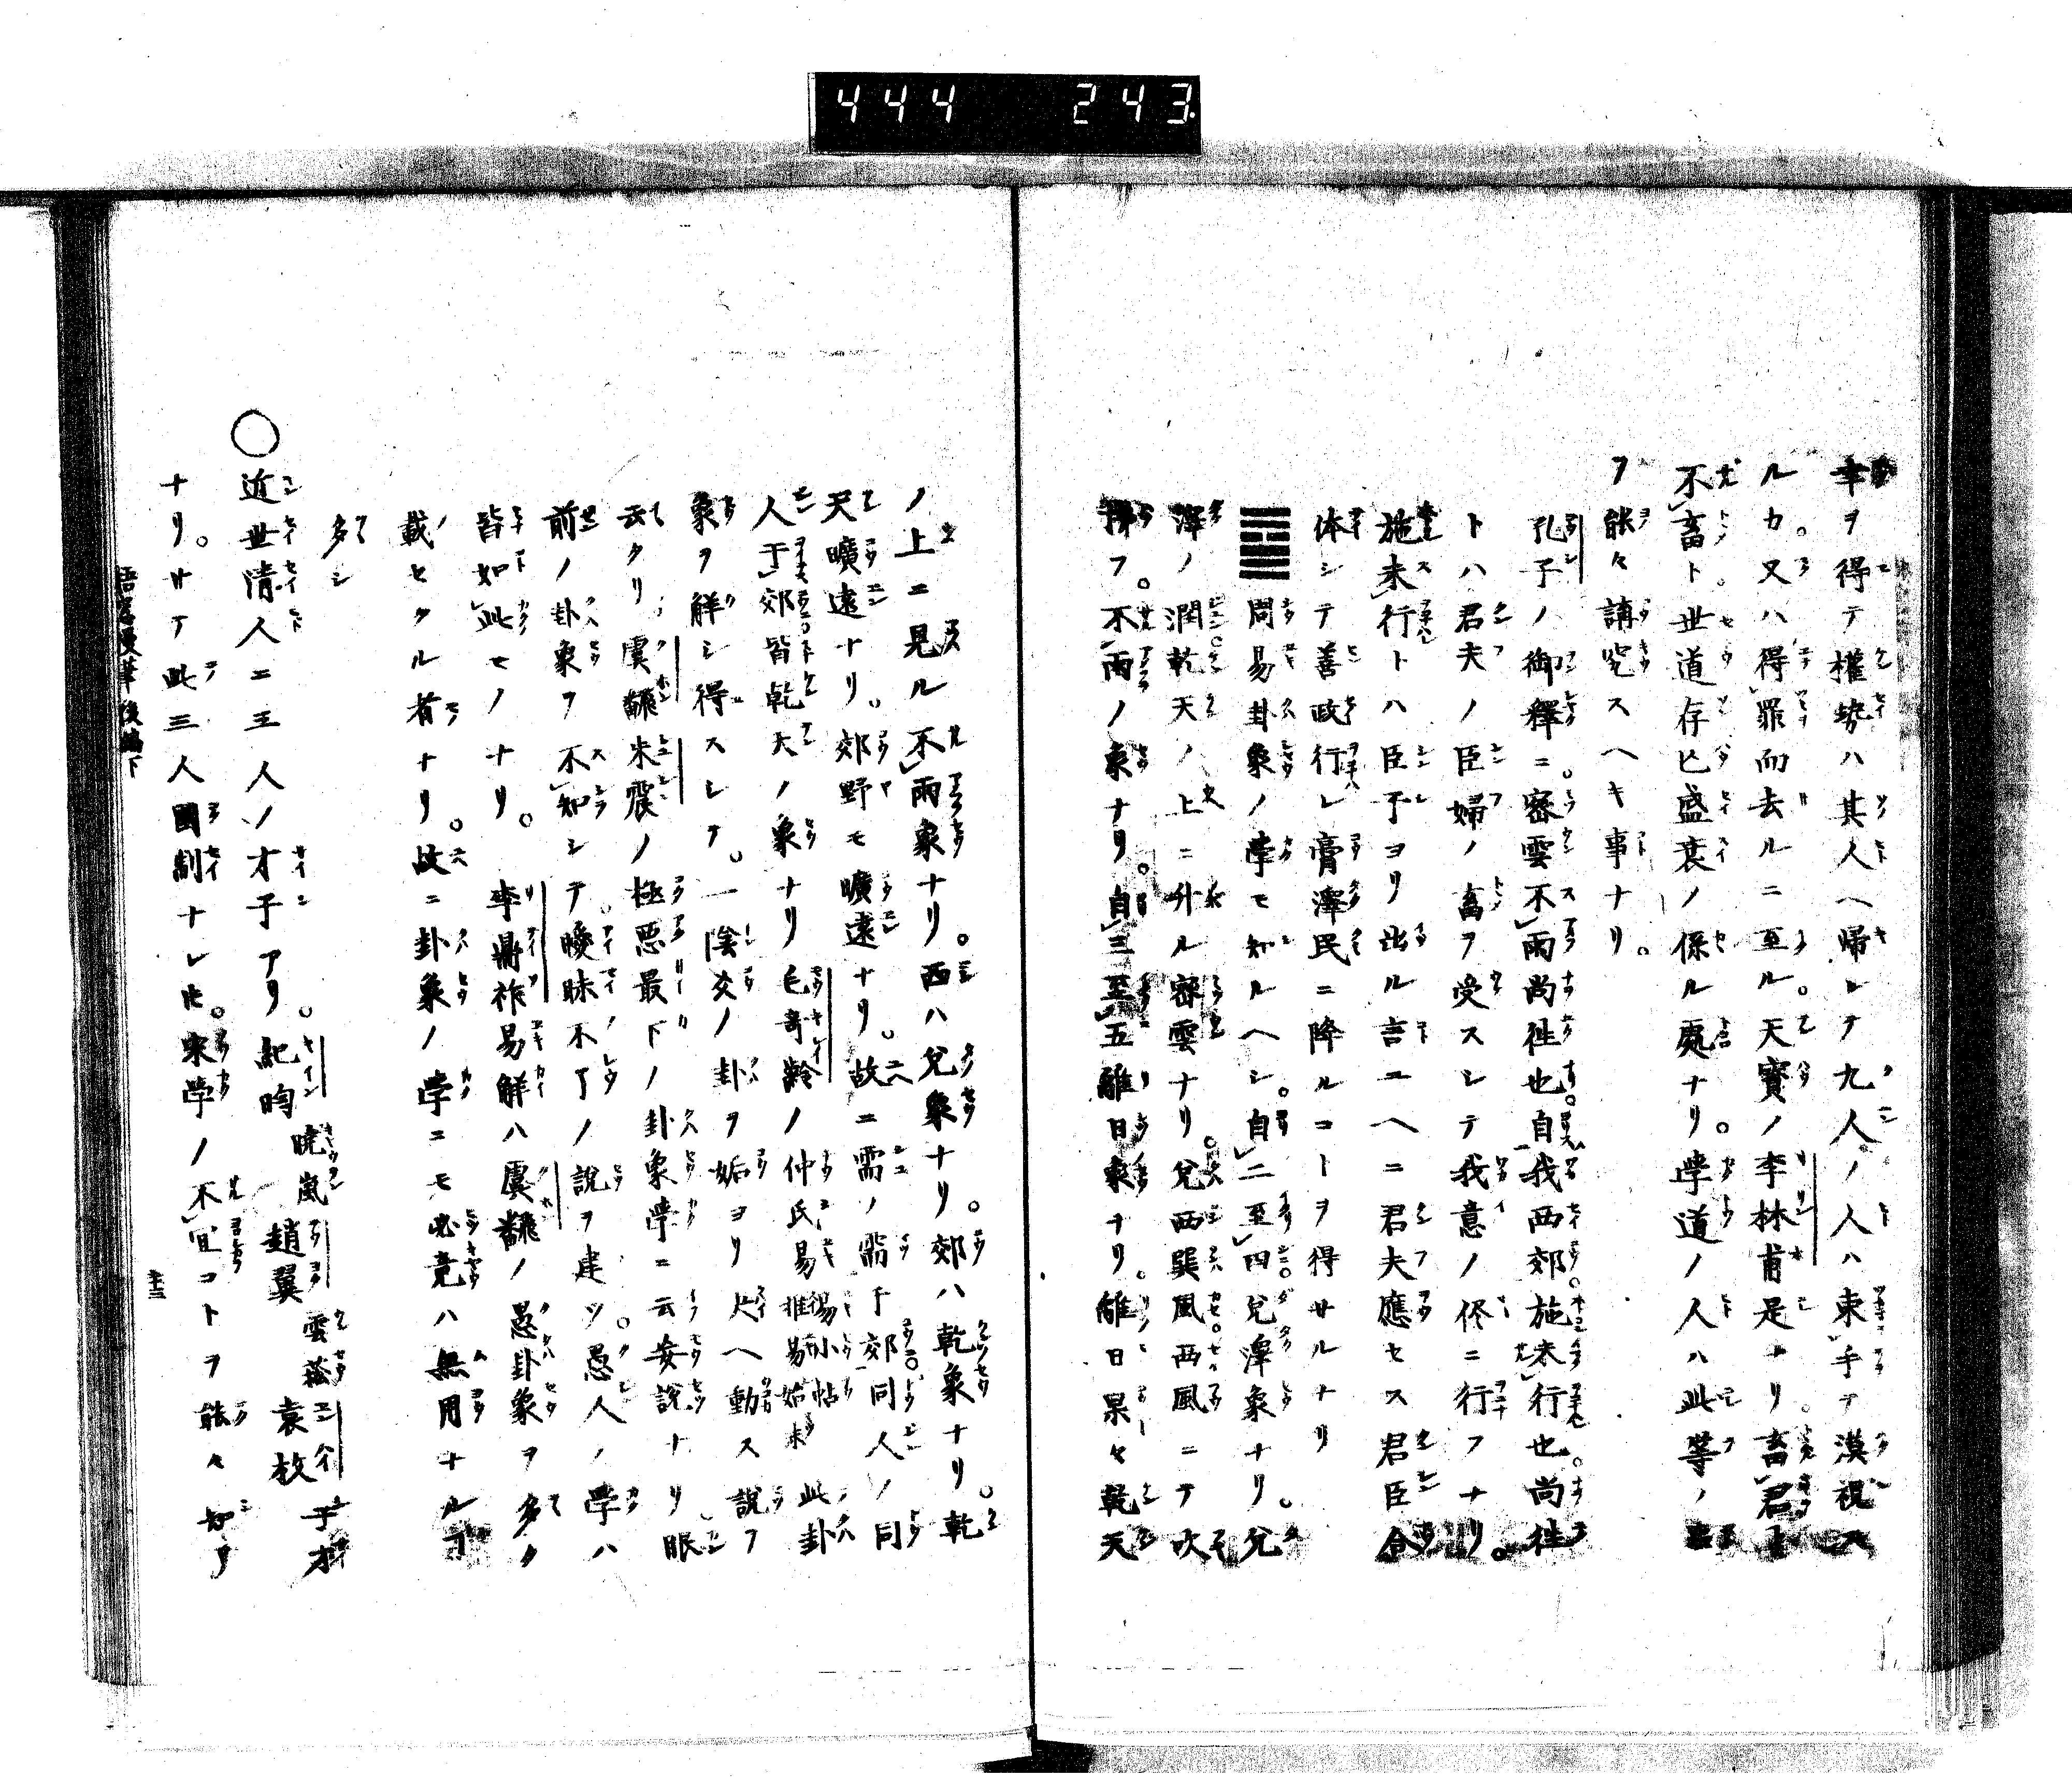 444 243
幸ヲ得テ權勢ハ其人ヘ帰シテ九人ノ人ハ束手テ漠視ス
ルカ。又ハ得罪而去ルニ至ル。天寳ノ李林甫是ナリ。畜君
不畜ト。世道存亡盛衰ノ係ル處ナリ。學道ノ人ハ此等ノ
ヲ能々講究スヘキ事ナリ。
孔子ノ御釋ニ。密雲不雨尚徃也。自我西郊。施未行也。尚徃
トハ君夫ノ臣婦ノ畜ヲ受スシテ我意ノ侭ニ行フナリ。
施未行トハ臣子ヨリ出ル言ユヘニ君夫應セス君臣合
体シテ善政行レ膏澤民ニ降ルコトヲ得サルナリ
周易卦象ノ學モ知ルヘシ。自二至四兌澤象ナリ。兌
澤ノ潤乾天ノ上ニ升ル密雲ナリ。兌西巽風西風ニテ吹
拂フ。不雨ノ象ナリ。自三至五離日象ナリ。離日杲々乾天
ノ上ニ見ル不雨象ナリ。西ハ兌象ナリ。郊ハ乾象ナリ。乾
天曠遠ナリ。郊野モ曠遠ナリ。故ニ需ノ需于郊同人ノ同
人于郊皆乾天ノ象ナリ毛奇齡ノ仲氏易推易始末易小帖此卦
象ヲ解シ得スシテ。一陰爻ノ卦ヲ姤ヨリ夬ヘ動ス說ヲ
云タリ虞飜朱震ノ極惡最下ノ卦象學ニ云妄說ナリ。眼
前ノ卦象ヲ不知シテ。曖昧不了ノ說ヲ建ツ。愚人ノ學ハ
皆如此モノナリ。李鼎祚易解ハ虞飜ノ愚卦象ヲ多ク
載セタル者ナリ。故ニ卦象ノ學ニモ必竟ハ無用ナル
多シ
○近世清人ニ三人ノ才子アリ。紀昀曉嵐趙翼雲菘袁枚子才
ナリ。サテ此三人國制ナレ𪜈。宋學ノ不宜コトヲ能々知リ
梧窓漫筆後編下